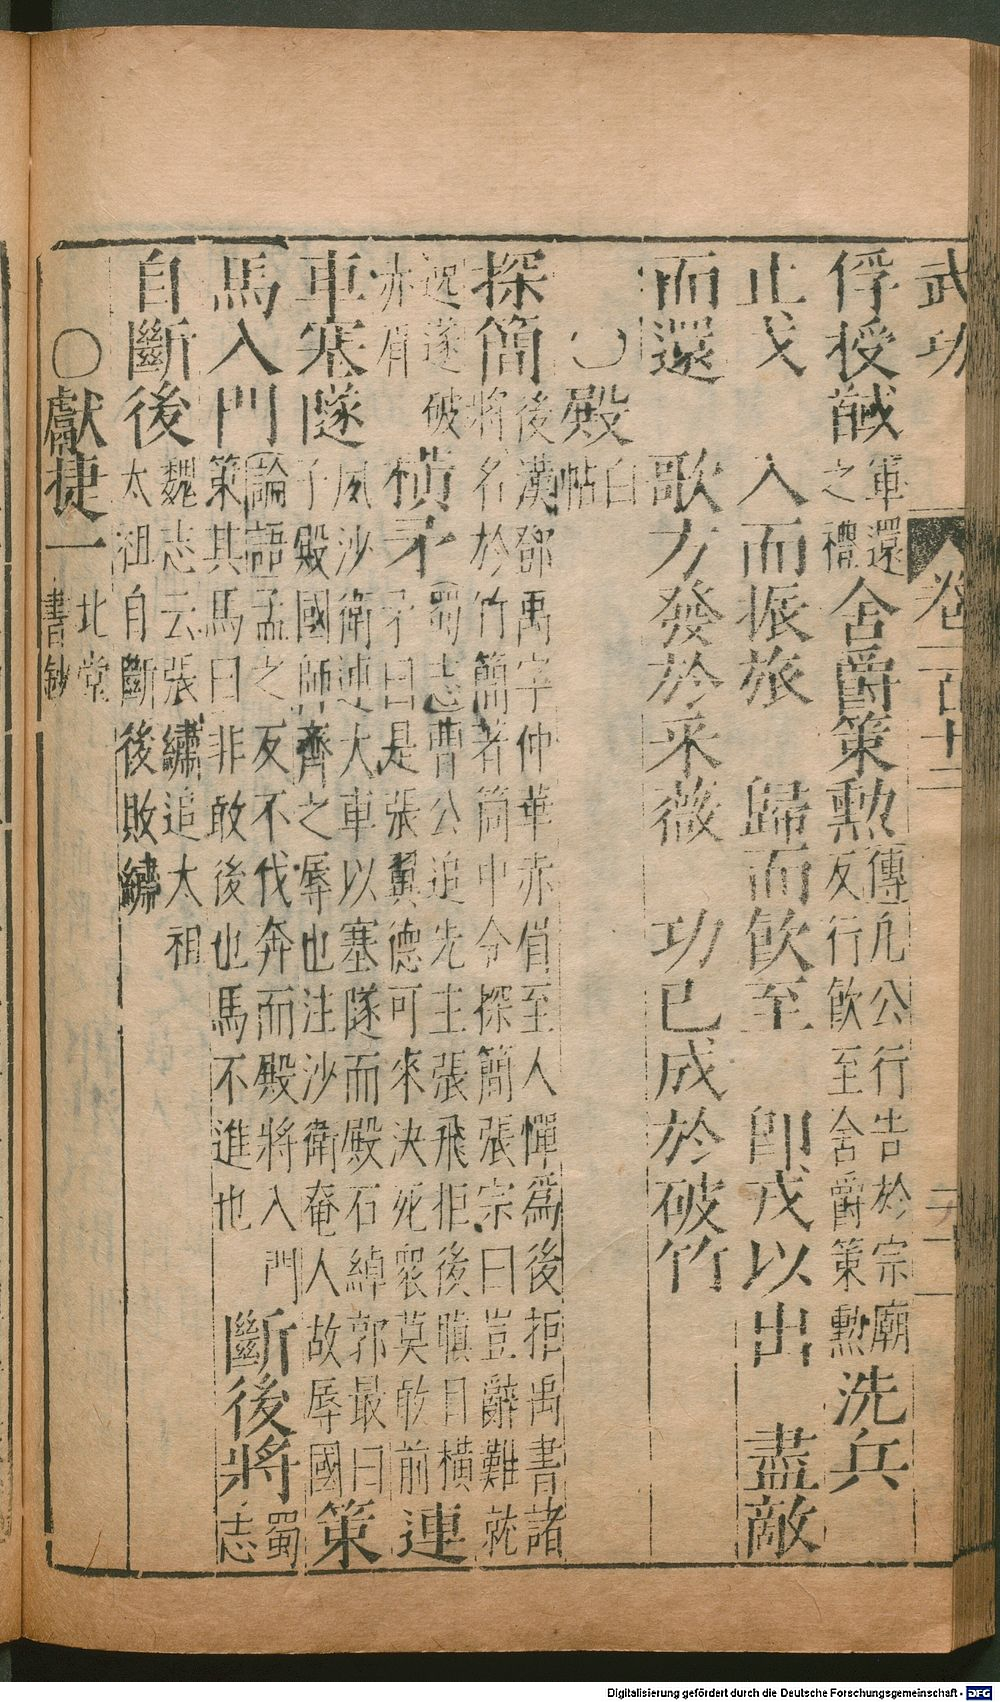 武功 卷一百十二
俘授馘軍還之禮舍爵策勲傳凡公行告於宗廟友行飲至舍爵策勲洗兵
止戈 入而振旅 歸而飲至 即戎以出 盡敵
而還 歌方發於采薇 功已成於破竹
〇殿白帖
探簡後漢鄧禹字仲華赤眉至人憚爲後拒禹書諸將名於竹簡著筒中令探簡張宗曰豈辭難就
逃遂破赤眉横矛蜀志曹公追先主張飛拒後瞋目橫矛曰是張翼德可來決死衆莫敢前連
車塞隧夙沙衛連大車以塞隧而殿石綽郭最曰子殿國師齊之辱也注沙衛奄人故辱國策
馬入門論語孟之反不伐奔而殿將入門策其馬曰非敢後也馬不進也斷後將蜀志
自斷後魏志云張繡追太祖太祖自斷後敗繡
〇獻捷一北堂書鈔
Digitalisierung gefördert durch die Deutsche Forschungsgemeinschaft - DFG